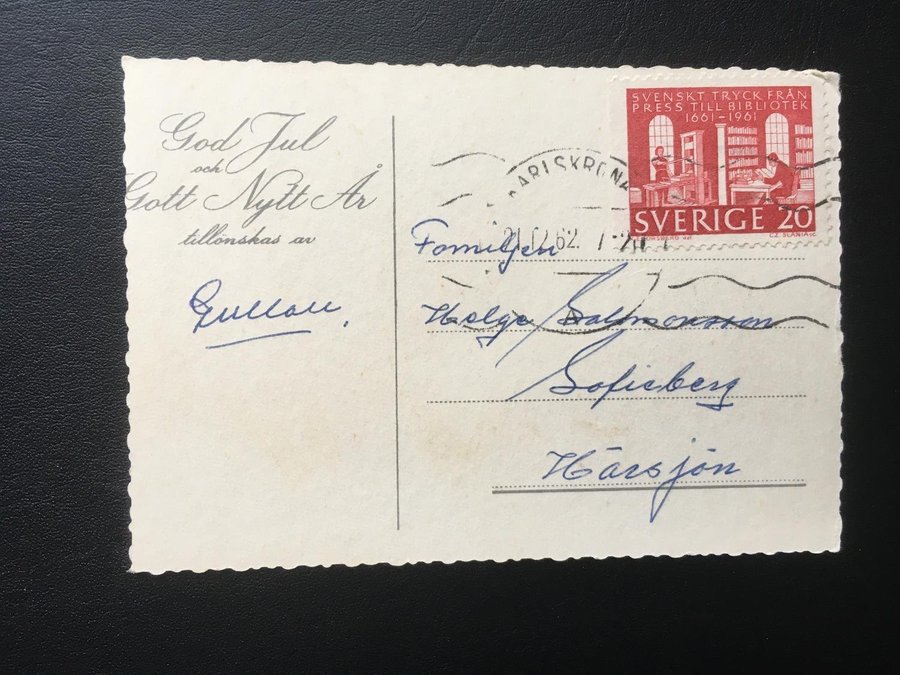 God Jul
och
Gott Nytt År
tillönskas av
Gullan.
SVENSKT TRYCK FRÅN
PRESS TILL BIBLIOTEK
1661–1961
SVERIGE 20
CZ. SLANIA SC.
KARLSKRONA
21.12.62.
Familjen
Helge Salomonsson
Sofieberg
Härsjön